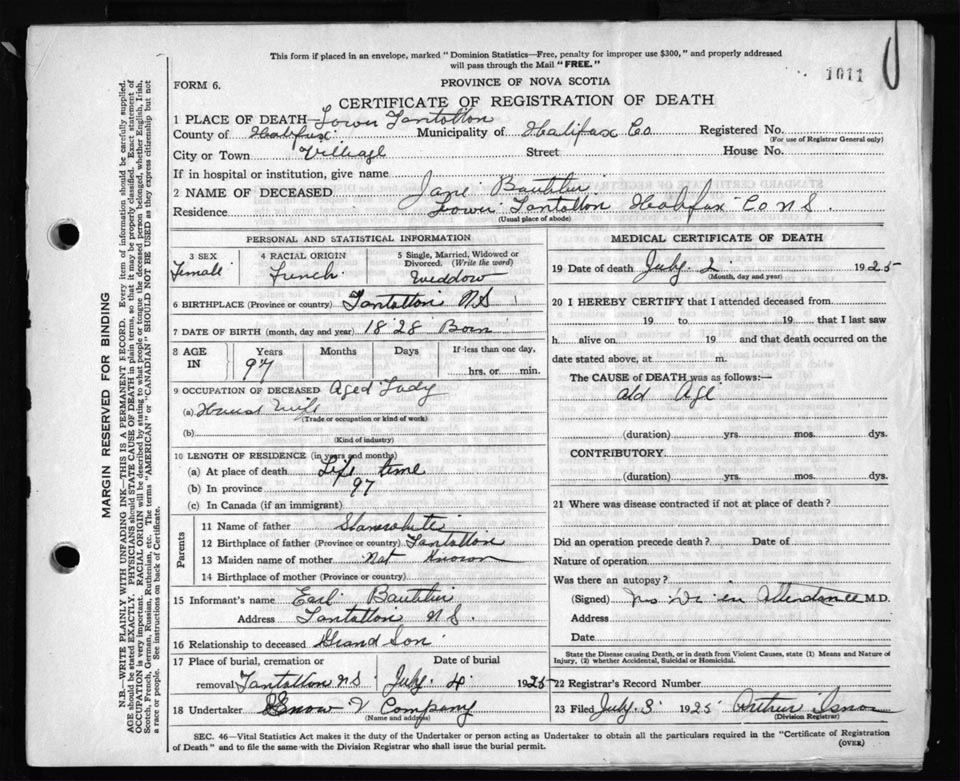 This form if placed in an envelope, marked "Dominion Statistics—Free, penalty for improper use $300," and properly addressed
will pass through the Mail "FREE."
1011
FORM 6.
PROVINCE OF NOVA SCOTIA
CERTIFICATE OF REGISTRATION OF DEATH
1 PLACE OF DEATH— Lower Tantallon
County of Halifax Municipality of Halifax Co Registered No.
(For use of Registrar General only)
City or Town Village Street House No.
If in hospital or institution, give name
2 NAME OF DECEASED Jane
Residence Lower Tantallon Halifax Co N S.
(Usual place of abode)
PERSONAL AND STATISTICAL INFORMATION
3 SEX
Female
4 RACIAL ORIGIN
French
5 Single, Married, Widowed or
Divorced. (Write the word)
Widdow
6 BIRTHPLACE (Province or country) Tantallon N S
7 DATE OF BIRTH (month, day and year) 1828 Born
8 AGE IN
Years Months Days If less than one day,
97 hrs. or min.
9 OCCUPATION OF DECEASED Aged Lady
(a) House Wife
(Trade or occupation or kind of work)
(b)
(Kind of industry)
10 LENGTH OF RESIDENCE (in years and months)
(a) At place of death Life time
(b) In province 97
(c) In Canada (if an immigrant)
Parents
11 Name of father
12 Birthplace of father (Province or country) Tantallon
13 Maiden name of mother Not Knowon
14 Birthplace of mother (Province or country)
15 Informant's name Earl
Address Tantallon N S.
16 Relationship to deceased Grand Son
17 Place of burial, cremation or Date of burial
removal Tantallon N S July 4 1925
18 Undertaker Snow & Company
(Name and address)
MEDICAL CERTIFICATE OF DEATH
19 Date of death July 2 1925
(Month, day and year)
20 I HEREBY CERTIFY that I attended deceased from
19 to 19 that I last saw
h alive on 19 and that death occurred on the
date stated above, at m.
The CAUSE of DEATH was as follows:—
old Age
(duration) yrs. mos. dys.
CONTRIBUTORY
(duration) yrs. mos. dys.
21 Where was disease contracted if not at place of death?
Did an operation precede death? Date of
Nature of operation
Was there an autopsy?
(Signed) no Dr in Attendance M.D.
Address
Date
State the Disease causing Death, or in death from Violent Causes, state (1) Means and Nature of
Injury, (2) whether Accidental, Suicidal or Homicidal.
22 Registrar's Record Number
23 Filed July 3 1925 Arthur
(Division Registrar)
SEC. 46—Vital Statistics Act makes it the duty of the Undertaker or person acting as Undertaker to obtain all the particulars required in the "Certificate of Registration
of Death" and to file the same with the Division Registrar who shall issue the burial permit.
(OVER)
MARGIN RESERVED FOR BINDING
N.B.—WRITE PLAINLY WITH UNFADING INK—THIS IS A PERMANENT RECORD. Every item of information should be carefully supplied.
AGE should be stated EXACTLY. PHYSICIANS should STATE CAUSE OF DEATH in plain terms, so that it may be properly classified. Exact statement of
OCCUPATION is very important. RACIAL ORIGIN will be described by stating to what people or tongue the deceased person belonged, whether English, Irish,
Scotch, French, German, Russian, Ruthenian, etc. The terms "AMERICAN" or "CANADIAN" SHOULD NOT BE USED as they express citizenship but not
a race or people. See instructions on back of Certificate.